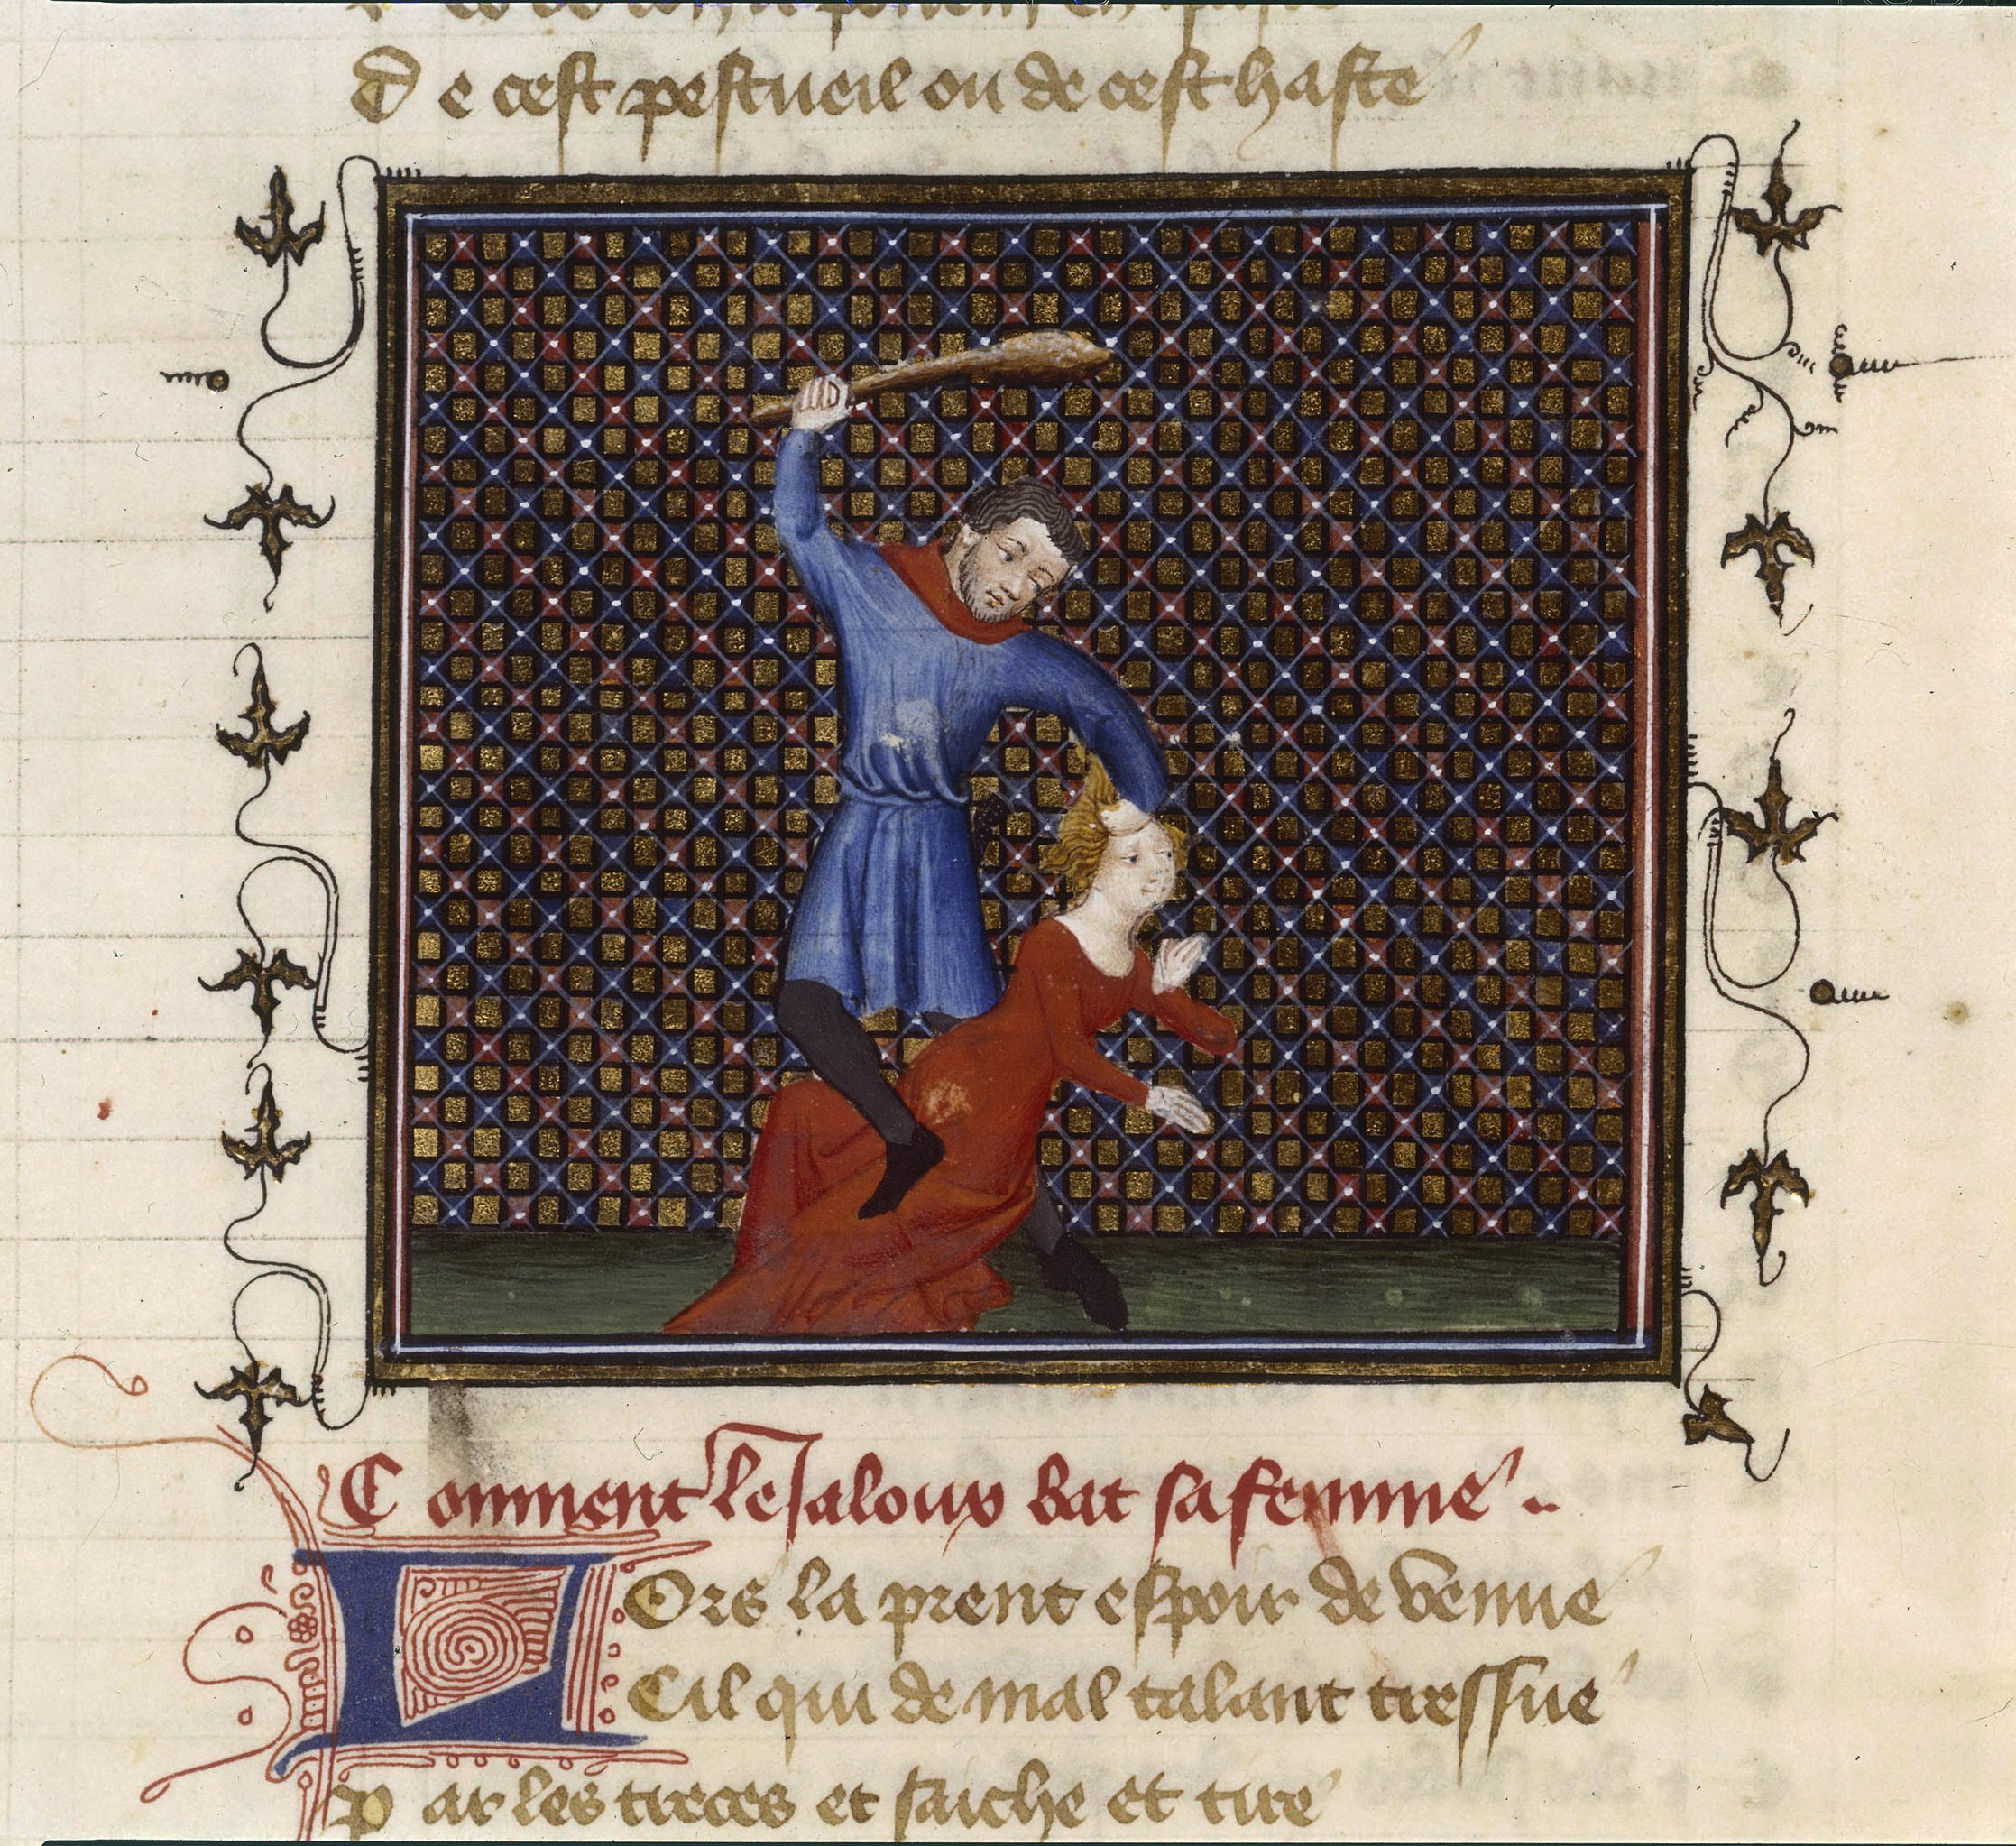 De cest pestueil ou de cest haste
Comment le Jaloux bat sa femme
Lors la prent espoir de venue
Cil qui de mal talant tressue
Par les treces et saiche et tire